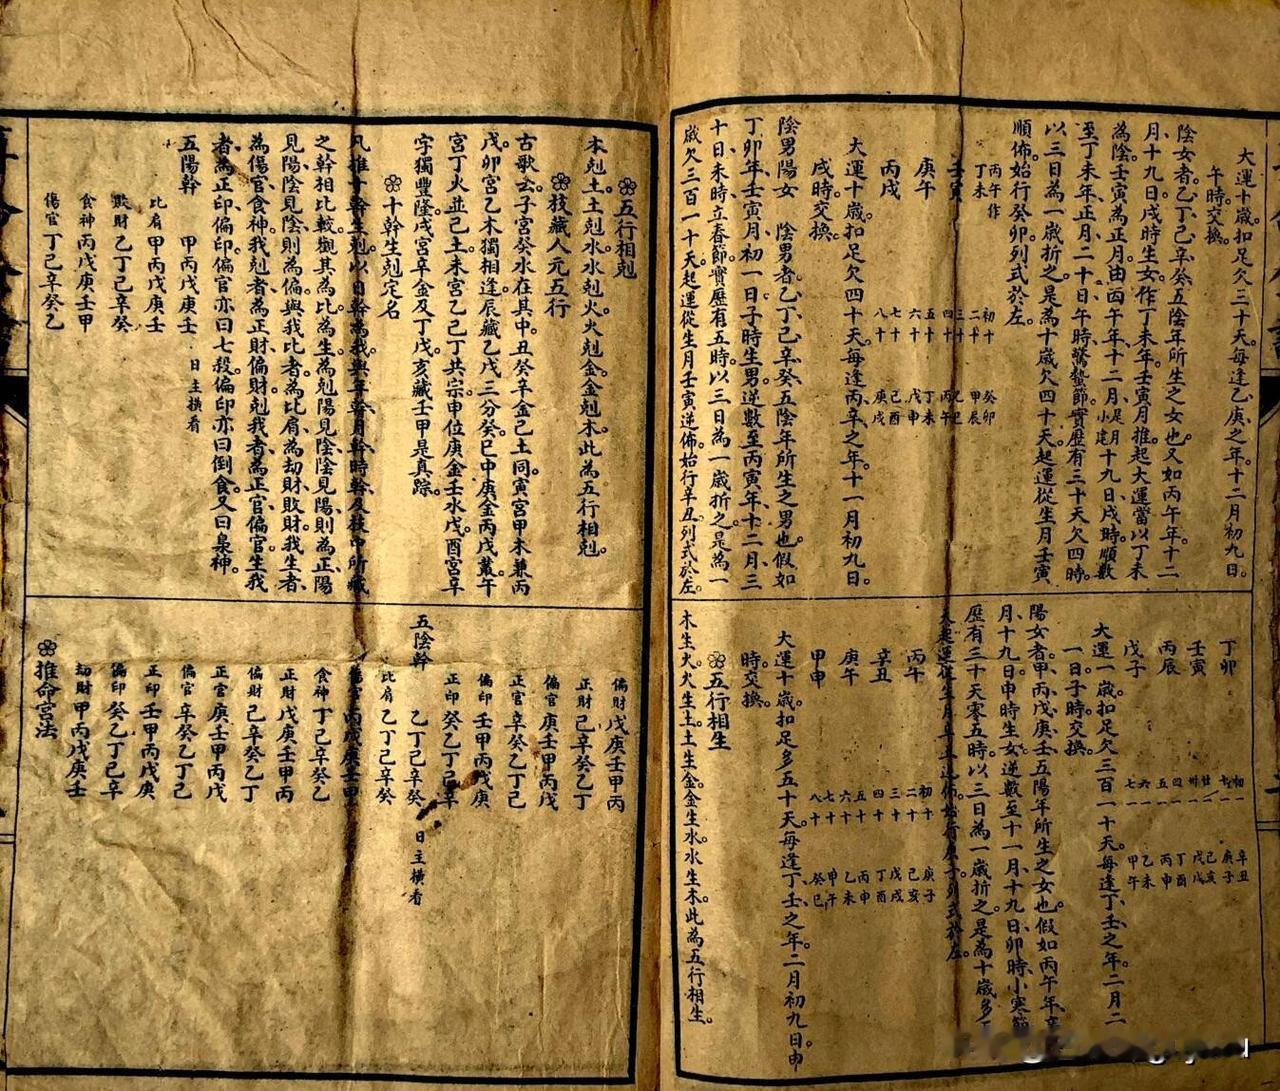 大運十歲扣足欠三十天。每逢乙庚之年十二月初九日
午時交換。
陰女者乙丁己辛癸五陰年所生之女也。又如丙午年十二
月十九日戌時生女作丁未年壬寅月推起大運當以丁未
為陰壬寅為正月由丙午年十二月小建足月十九日戌時順數
至丁未年正月二十日午時驚蟄節實歷有三十天欠四時。
以三日為一歲折之是為十歲欠四十天。起運從生月壬寅
順佈始行癸卯列式於左。
丙午作丁未 初十 癸卯
二十 甲辰
壬寅 三十 乙巳
四十 丙午
庚午 五十 丁未
六十 戊申
丙戌 七十 己酉
八十 庚戌
大運十歲扣足欠四十天每逢丙辛之年十一月初九日
戌時交換。
陰男陽女 陰男者乙丁己辛癸五陰年所生之男也假如
丁卯年壬寅月初一日子時生男逆數至丙寅年十二月三
十日未時立春節實歷有五時以三日為一歲折之是為一
歲欠三百一十天起運從生月壬寅逆佈始行辛丑列式於左。
丁卯 初一 辛丑
十一 庚子
壬寅 廿一 己亥
卅一 戊戌
四一 丁酉
丙辰 五一 丙申
六一 乙未
戊子 七一 甲午
大運一歲扣足欠三百一十天每逢丁壬之年二月二
一日子時交換
陽女者甲丙戊庚壬五陽年所生之女也假如丙午年辛
月十九日申時生女逆數至十一月十九日卯時小寒節
歷有三十天零五時以三日為一歲折之是為十歲多五
丙午 初十 庚子
二十 己亥
辛丑 三十 戊戌
四十 丁酉
庚午 五十 丙申
六十 乙未
甲申 七十 甲午
八十 癸巳
大運十歲扣足多五十天每逢丁壬之年二月初九日申
時交換。
五行相生
木生火。火生土。土生金。金生水。水生木。此為五行相生。
五行相剋
木剋土。土剋水。水剋火。火剋金。金剋木。此為五行相剋。
枝藏人元五行
古歌云。子宮癸水在其中。丑癸辛金己土同。寅宮甲木兼丙
戊。卯宮乙木獨相逢。辰藏乙戊三分癸。巳中庚金丙戊叢。午
宮丁火並己土。未宮乙己丁共宗。申位庚金壬水戊。酉宮辛
字獨豐隆。戌宮辛金及丁戊。亥藏壬甲是真踪。
十幹生剋定名
凡推十幹生剋以日幹為我與年幹月幹時幹及枝中所藏
之幹相比較觀其為比為生為剋陽見陰陰見陽則為正陽
見陽陰見陰則為偏與我比者為比肩為劫財敗財我生者
為傷官食神我剋者為正財偏財剋我者為正官偏官生我
者為正印偏印偏官亦曰七殺。偏印亦曰倒食又曰梟神。
五陽幹 甲丙戊庚壬 日主橫看
比肩 甲丙戊庚壬
敗財 乙丁己辛癸
食神 丙戊庚壬甲
傷官 丁己辛癸乙
偏財 戊庚壬甲丙
正財 己辛癸乙丁
偏官 庚壬甲丙戊
正官 辛癸乙丁己
偏印 壬甲丙戊庚
正印 癸乙丁己辛
五陰幹 乙丁己辛癸 日主橫看
比肩 乙丁己辛癸
傷官 丙戊庚壬甲
食神 丁己辛癸乙
正財 戊庚壬甲丙
偏財 己辛癸乙丁
正官 庚壬甲丙戊
偏官 辛癸乙丁己
正印 壬甲丙戊庚
偏印 癸乙丁己辛
劫財 甲丙戊庚壬
推命宮法